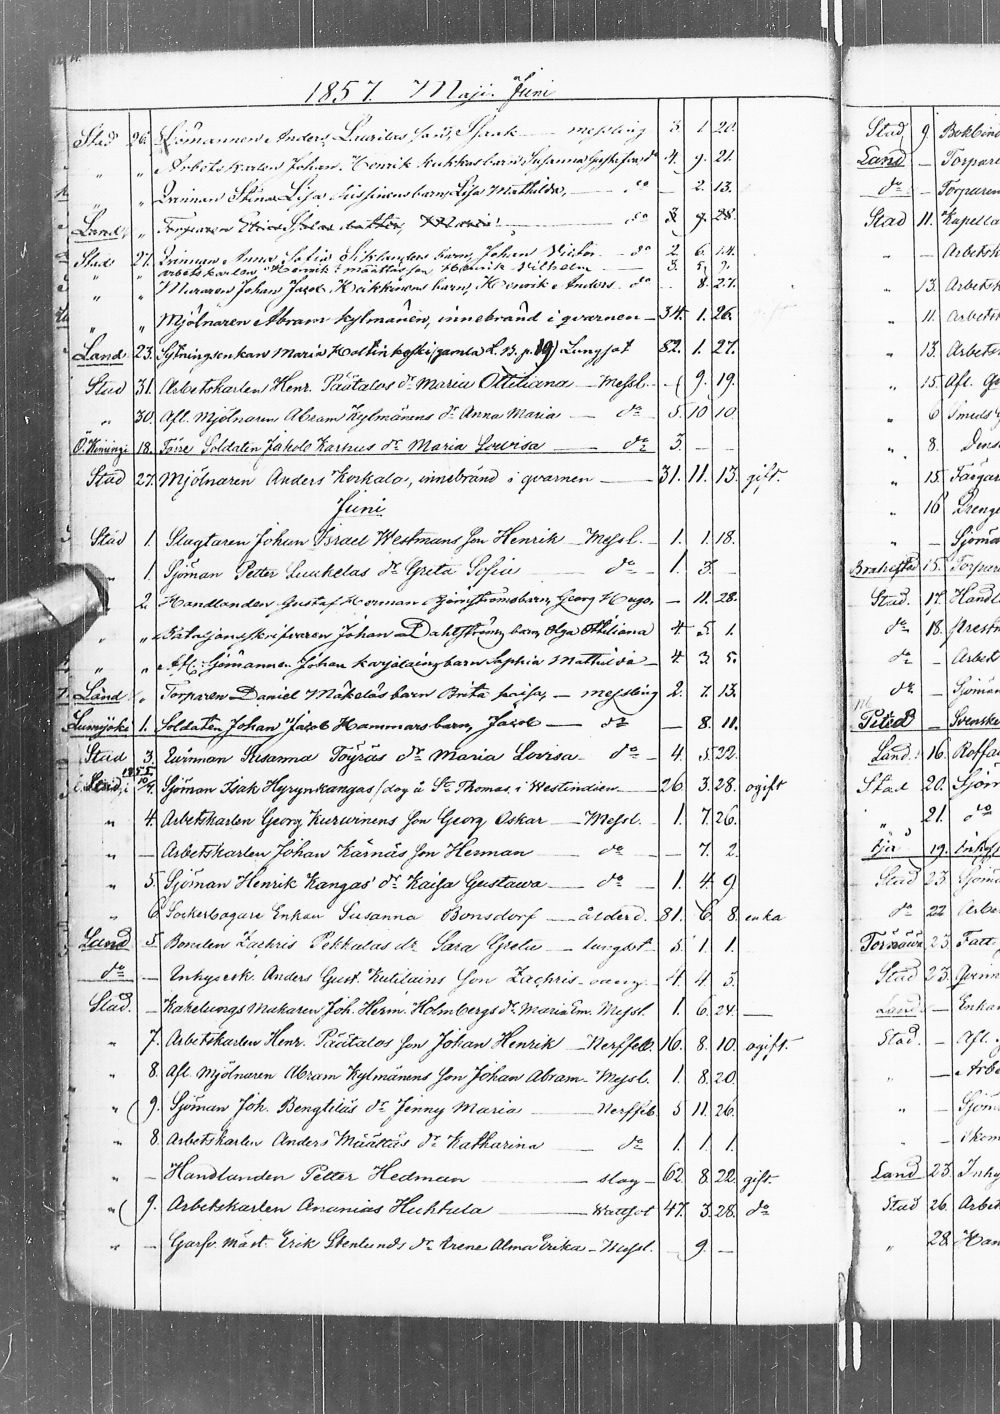 1857. Maji. Juni
Stad 26. Sjömannen Anders Lauritas son, Isaak — messling 3. 1. 20.
" " Arbetskarlen Johan Henrik Kukkas barn Susanna Gustafva do 4. 9. 21.
" " Qvinnan Stina Lisa barn, Lisa Mathilda, — do — 2. 13.
Land, " Torparen do 3. 9. 28.
Stad 27. Qvinnan Anna Sofia barn, Johan Victor — do 2. 6. 14.
" " arbetskarlen, Henrik Määttäs son Henrik Vilhelm — 3. 5.
" " Muraren Johan Jacob Keikkinens barn, Henrik Anders — do — 8. 27.
" " Mjölnaren Abram Kylmänen, innebränd i qvarnen — 34. 1. 26.
Land 23. Sytningsenkan Maria Holtinkoski (gamla L. B. p. 19) Lungsot 82. 1. 27.
Stad 31. Arbetskarlen Henr. Päätalos dr Maria Ottiliana — Messl. — 9. 19.
" 30. Afl. Mjölnaren Abram Kylmänens dr Anna Maria — do 5. 10 10
Ö. Kiminge 18. Förre Soldaten Jakob Karhus dr Maria Lovisa — do 3. — —
Stad 27. Mjölnaren Anders Korkalo, innebränd i qvarnen — 31. 11. 13. gift.
Juni
Stad 1. Slagtaren Johan Israel Westmans son Henrik — Messl. — 1. 1. 18.
" 1. Sjöman Petter Luukelas dr Greta Sofia — do — 1. 3. —
2. Handlanden Gustaf Herman Björnströms barn, Georg Hugo, — 11. 28.
" " Johan Dahlströms barn, Olga Othiliana 4. 5. 1.
" " Afl: Sjömannen Johan Karjalaing barn Sophia Mathilda — 4. 3. 5.
Land " Torparen Daniel Mäkeläs barn Brita Kaisa, — messling 2. 7. 13.
Lumijoki 1. Soldaten Johan Jacob Hammars barn, Jacob — do — 8. 11.
Stad 3. Qvinnan Susanna Töyräs dr Maria Lovisa — do — 4. 5. 22.
Stad, Sjöman Isak Hyrynkangas (dog å St Thomas, i Westindien — 26. 3. 28. ogift
" 4. Arbetskarlen Georg Kurvinens son Georg Oskar — Messl. — 1. 7. 26.
" — Arbetskarlen Johan Kärnäs son Herman — do — — 7. 2.
" 5. Sjöman Henrik Kangas' dr Kaisa Gustava — do — 1. 4. 9
" 6. Sockerbagare Enkan Susanna Bonsdorf — ålderd. 81. 6. 8. enka
Land 5. Bonden Zachris Pekkalas dr Sara Greta — lungsot — 5 1 1.
do — Inhyseh. Anders Gust. son Zachris — 4. 4 3.
Stad. — Kakelungs Makaren Joh. Herm. Holmbergs dr Maria Em. Messl. 1. 6. 24. —
" 7. Arbetskarlen Henr. Päätalos son Johan Henrik — Nerffeb. 16. 8. 10. ogift.
" 8. Afl. Mjölnaren Abram Kylmänens son Johan Abram. Messl. 1. 8. 20.
" 9. Sjöman Joh. Bengtiläs dr Jenny Maria — Nerffeb 5 11. 26.
" 8. Arbetskarlen Anders Määttäs dr Katharina — do 1. 1. 1.
" — Handlanden Petter Hedman — slag — 62. 8. 22. gift.
" 9. Arbetskarlen Ananias Huhtula — Wattsot 47. 3. 28. do
" — Garfv. Mäst. Erik Stenlunds dr Irene Alma Erika — Messl. 9. —
Stad, 9
Land — Torpare
do — Torparen
Stad 11. Kapella
— Arbetsk
" 13. Arbetsk
" 11. Arbetsk
" 13. Arbets
" 15. Afl. G
" 6 Smeds
" 8. Dens
" 15. Färgar
" 16. Drenge
" — Sjöma
Brahestad 15. Torpar
Stad. 17. Handl
do 18. Prest
do — Arbet
do — Sjöman
Piteå — Svenske
Land. 16. Koffa
Stad 20. Sjöm
" 21. do
19. Inhys
Stad 23. Sjöma
do 22 Arbe
23. Fatt.
Stad 23. Qvin
Land — Enkan
Stad. — Afl.
" — Arbe
" — Sjöm
Land 23. Inhy
Stad 26. Arbet
" 28. Han